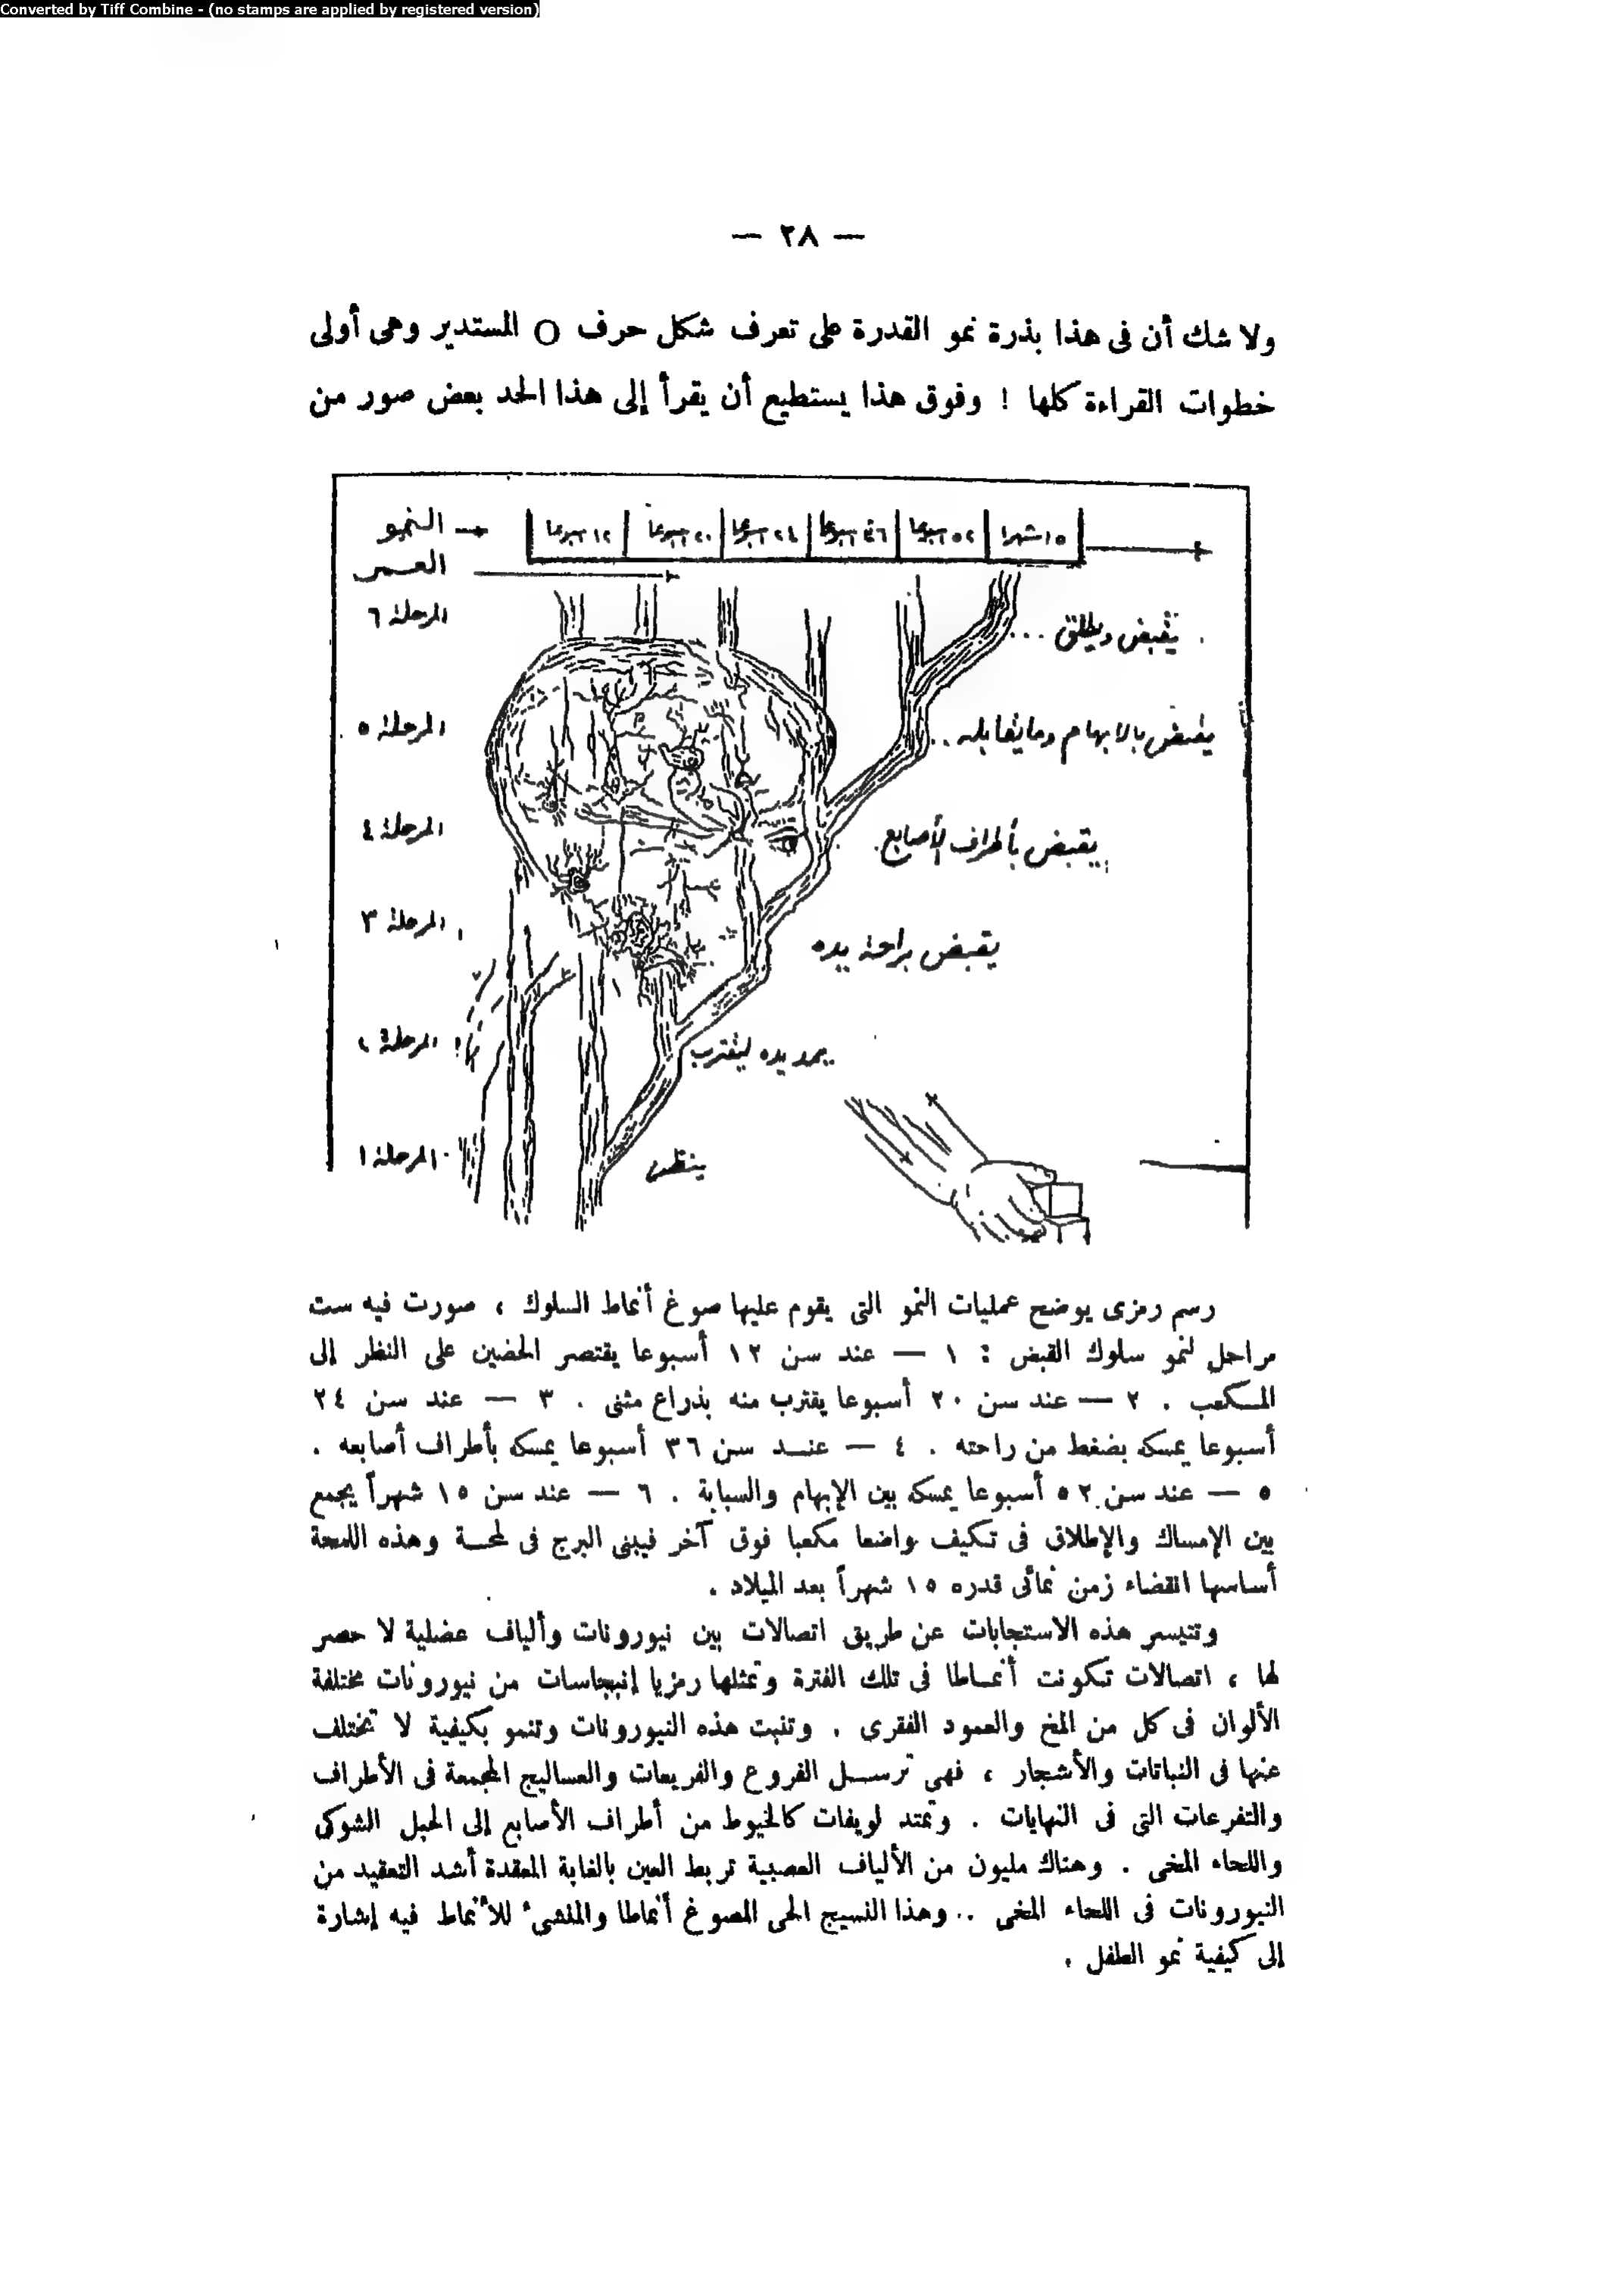 Converted by Tiff Combine - (no stamps are applied by registered version)
— ٢٨ —
ولا شك أن فى هذا بذرة نمو القدرة على تعرف شكل حرف O المستدير وهى أولى
خطوات القراءة كلها ! وفوق هذا يستطيع أن يقرأ إلى هذا الحد بعض صور من
النمو
١٢ أسبوعا ٢٠ أسبوعا ٢٤ أسبوعا ٣٦ أسبوعا ٥٢ أسبوعا ١٥ شهرا
العمر
المرحلة ٦
يقبض ويطلق ...
المرحلة ٥
يقبض بالابهام وما يقابله ..
المرحلة ٤
يقبض بأطراف الأصابع .
المرحلة ٣
يقبض براحة يده
المرحلة ٢
يمد يده ليقترب
المرحلة ١
ينظر
رسم رمزى يوضح عمليات النمو التى يقوم عليها صوغ أنماط السلوك ، صورت فيه ست
مراحل لنمو سلوك القبض : ١ — عند سن ١٢ أسبوعا يقتصر الحضين على النظر إلى
المكعب . ٢ — عند سن ٢٠ أسبوعا يقترب منه بذراع مثنى . ٣ — عند سن ٢٤
أسبوعا يمسكه بضغط من راحته . ٤ — عند سن ٣٦ أسبوعا يمسكه بأطراف أصابعه .
٥ — عند سن ٥٢ أسبوعا يمسكه بين الإبهام والسبابة . ٦ — عند سن ١٥ شهراً يجمع
بين الإمساك والإطلاق فى تكيف واضعا مكعبا فوق آخر فيبنى البرج فى لمحة وهذه اللمحة
أساسها انقضاء زمن نمائى قدره ١٥ شهراً بعد الميلاد .
وتتيسر هذه الاستجابات عن طريق اتصالات بين نيورونات وألياف عضلية لا حصر
لها ، اتصالات تكونت أنماطا فى تلك الفترة وتمثلها رمزيا إنبجاسات من نيورونات مختلفة
الألوان فى كل من المخ والعمود الفقرى . وتنبت هذه النيورونات وتنمو بكيفية لا تختلف
عنها فى النباتات والأشجار ، فهى ترسل الفروع والفريعات والعساليج المجمعة فى الأطراف
والتفرعات التى فى النهايات . وتمتد لويفات كالخيوط من أطراف الأصابع إلى الحبل الشوكى
واللحاء المخى . وهناك مليون من الألياف العصبية تربط العين بالغابة المعقدة أشد التعقيد من
النيورونات فى اللحاء المخى .. وهذا النسيج الحى المصوغ أنماطا والمنشىء للأنماط فيه إشارة
إلى كيفية نمو الطفل .